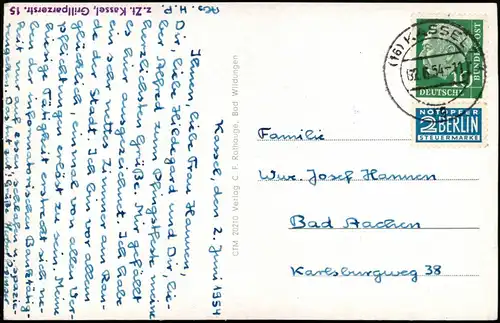 Abs. H. P.
z. Zt. Kassel, Grillparzerstr. 15
Kassel, den 2. Juni 1954
Ihnen, liebe Frau Hannen,
Dir, liebe Hildegard und Dir, lie-
ber Alfred zum Pfingstfeste meine
herzlichsten Grüße. Mir gefällt
es hier ausgezeichnet. Ich habe
ein sehr nettes Zimmer am Ran-
de der Stadt. Ich bin vor allem
glücklich, einmal von allen Ver-
pflichtungen erlöst zu sein. Meine
hiesige Tätigkeit erstreckt sich ne-
ben der
nur auf essen, schlafen, spazie-
CTM 20210 Verlag C. F. Rothauge, Bad Wildungen
(16) KASSEL
02.6.54
DEUTSCHE BUNDESPOST
10
NOTOPFER
2 BERLIN
STEUERMARKE
Familie
Wwe. Josef Hannen
Bad Aachen
Karlsburgweg 38